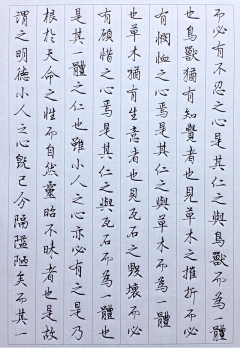 而必有不忍之心是其仁之與鳥獸而為一體
也鳥獸猶有知覺者也見草木之摧折而必
有憫恤之心焉是其仁之與草木而為一體
也草木猶有生意者也見瓦石之毀壞而必
有顧惜之心焉是其仁之與瓦石而為一體也
是其一體之仁也雖小人之心亦必有之是乃
根於天命之性而自然靈昭不昧者也是故
謂之明德小人之心既已分隔隘陋矣而其一